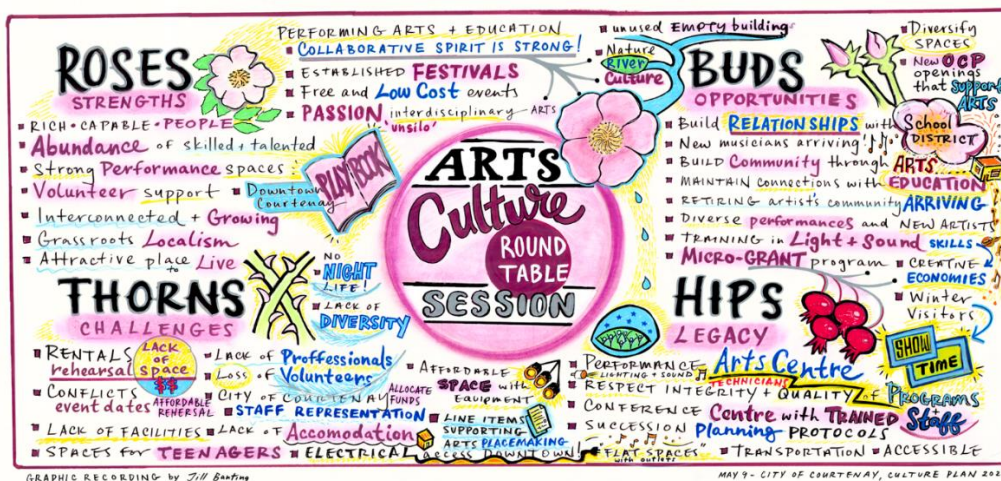 ROSES
STRENGTHS
RICH • CAPABLE • PEOPLE
Abundance of skilled + talented
Strong Performance spaces
Volunteer support
Interconnected + Growing
Grassroots Localism
Attractive place to Live
Downtown Courtenay
PLAYBOOK
PERFORMING ARTS + EDUCATION
COLLABORATIVE SPIRIT IS STRONG!
ESTABLISHED FESTIVALS
Free and Low Cost events
PASSION interdisciplinary ARTS
"unsilo"
ARTS
Culture
ROUND
TABLE
SESSION
unused Empty buildings
Nature
River
Culture
BUDS
OPPORTUNITIES
Build RELATIONSHIPS with School DISTRICT
New musicians arriving
BUILD Community through ARTS
MAINTAIN connections with EDUCATION
RETIRING artist's community ARRIVING
Diverse performances and NEW ARTISTS
TRAINING in Light + Sound SKILLS
MICRO-GRANT program
Diversify SPACES
New OCP
openings
that support
ARTS
CREATIVE
ECONOMIES
Winter
Visitors
THORNS
CHALLENGES
NO
NIGHT
LIFE!
LACK OF
DIVERSITY
RENTALS
rehearsal
LACK
OF
SPACE
$$
AFFORDABLE
REHERSAL
CONFLICTS
event dates
LACK OF FACILITIES
SPACES for TEENAGERS
LACK OF Proffessionals
Loss of Volunteers
CITY OF COURTENAY
STAFF REPRESENTATION
LACK OF Accomodation
ELECTRICAL access DOWNTOWN!
ALLOCATE
FUNDS
AFFORDABLE
SPACE with
Equipment
LINE ITEMS
SUPPORTING
ARTS PLACEMAKING
HIPS
LEGACY
PERFORMANCE Arts Centre
LIGHTING + SOUND
TECHNICIANS
RESPECT INTEGRITY + QUALITY of PROGRAMS
CONFERENCE Centre with TRAINED Staff
SUCCESSION Planning PROTOCOLS
"FLAT SPACES"
with outlets
TRANSPORTATION
ACCESSIBLE
SHOW
TIME
GRAPHIC RECORDING by Jill Banting
MAY 9 - CITY OF COURTENAY, CULTURE PLAN 202